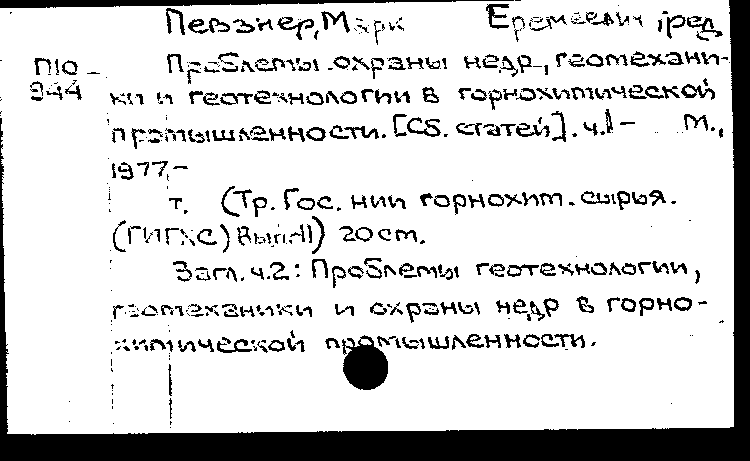 Певзнер, Марк Еремеевич, ред
П10- Проблемы охраны недр, геомехани-
944 ки и геотехнологии в горнохимической
промышленности. [Сб. статей]. ч.1- М.,
1977-
т. (Тр. Гос. нии горнохим. сырья.
(ГИГХС) Вып.41) 20 см.
Загл. ч.2: Проблемы геотехнологии,
геомеханики и охраны недр в горно-
химической промышленности.